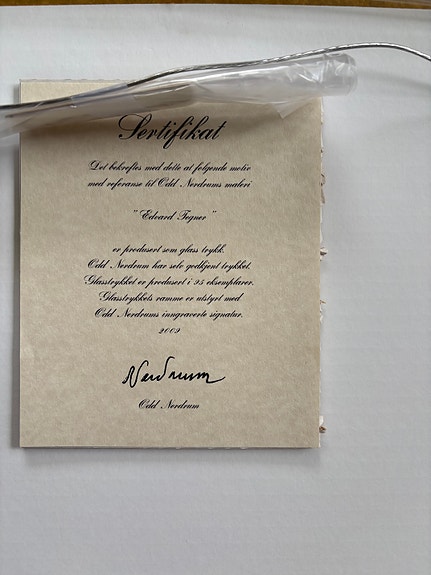 Sertifikat
Det bekreftes med dette at følgende motiv
med referanse til Odd Nerdrums maleri
"Edvard Tegner"
er produsert som glass trykk.
Odd Nerdrum har selv godkjent trykket.
Glasstrykket er produsert i 95 eksemplarer.
Glasstrykkets ramme er utstyrt med
Odd Nerdrums inngraverte signatur.
2009
Nerdrum
Odd Nerdrum